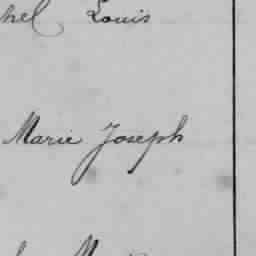 Louis
Marie Joseph